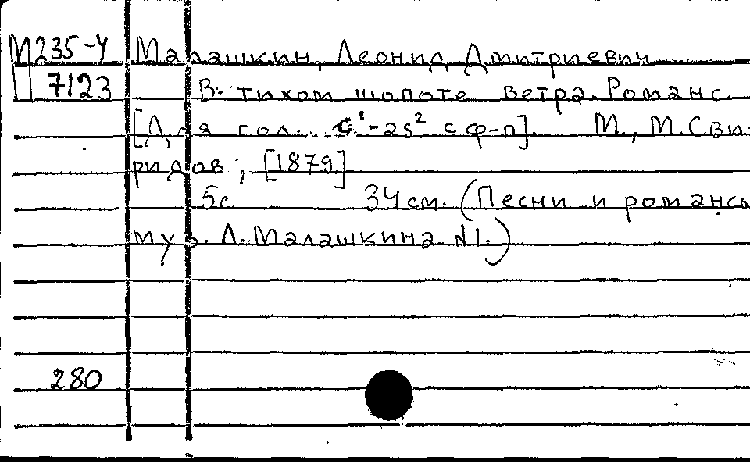 М235-4 Малашкин, Леонид Дмитриевич
7123 В тихом шопоте ветра. Романс.
[Для гол. c¹-as² с ф-п]. М., М. Сви-
ридов, [1879]
5 с. 34 см. (Песни и романсы
муз. Л. Малашкина. №1.)
280